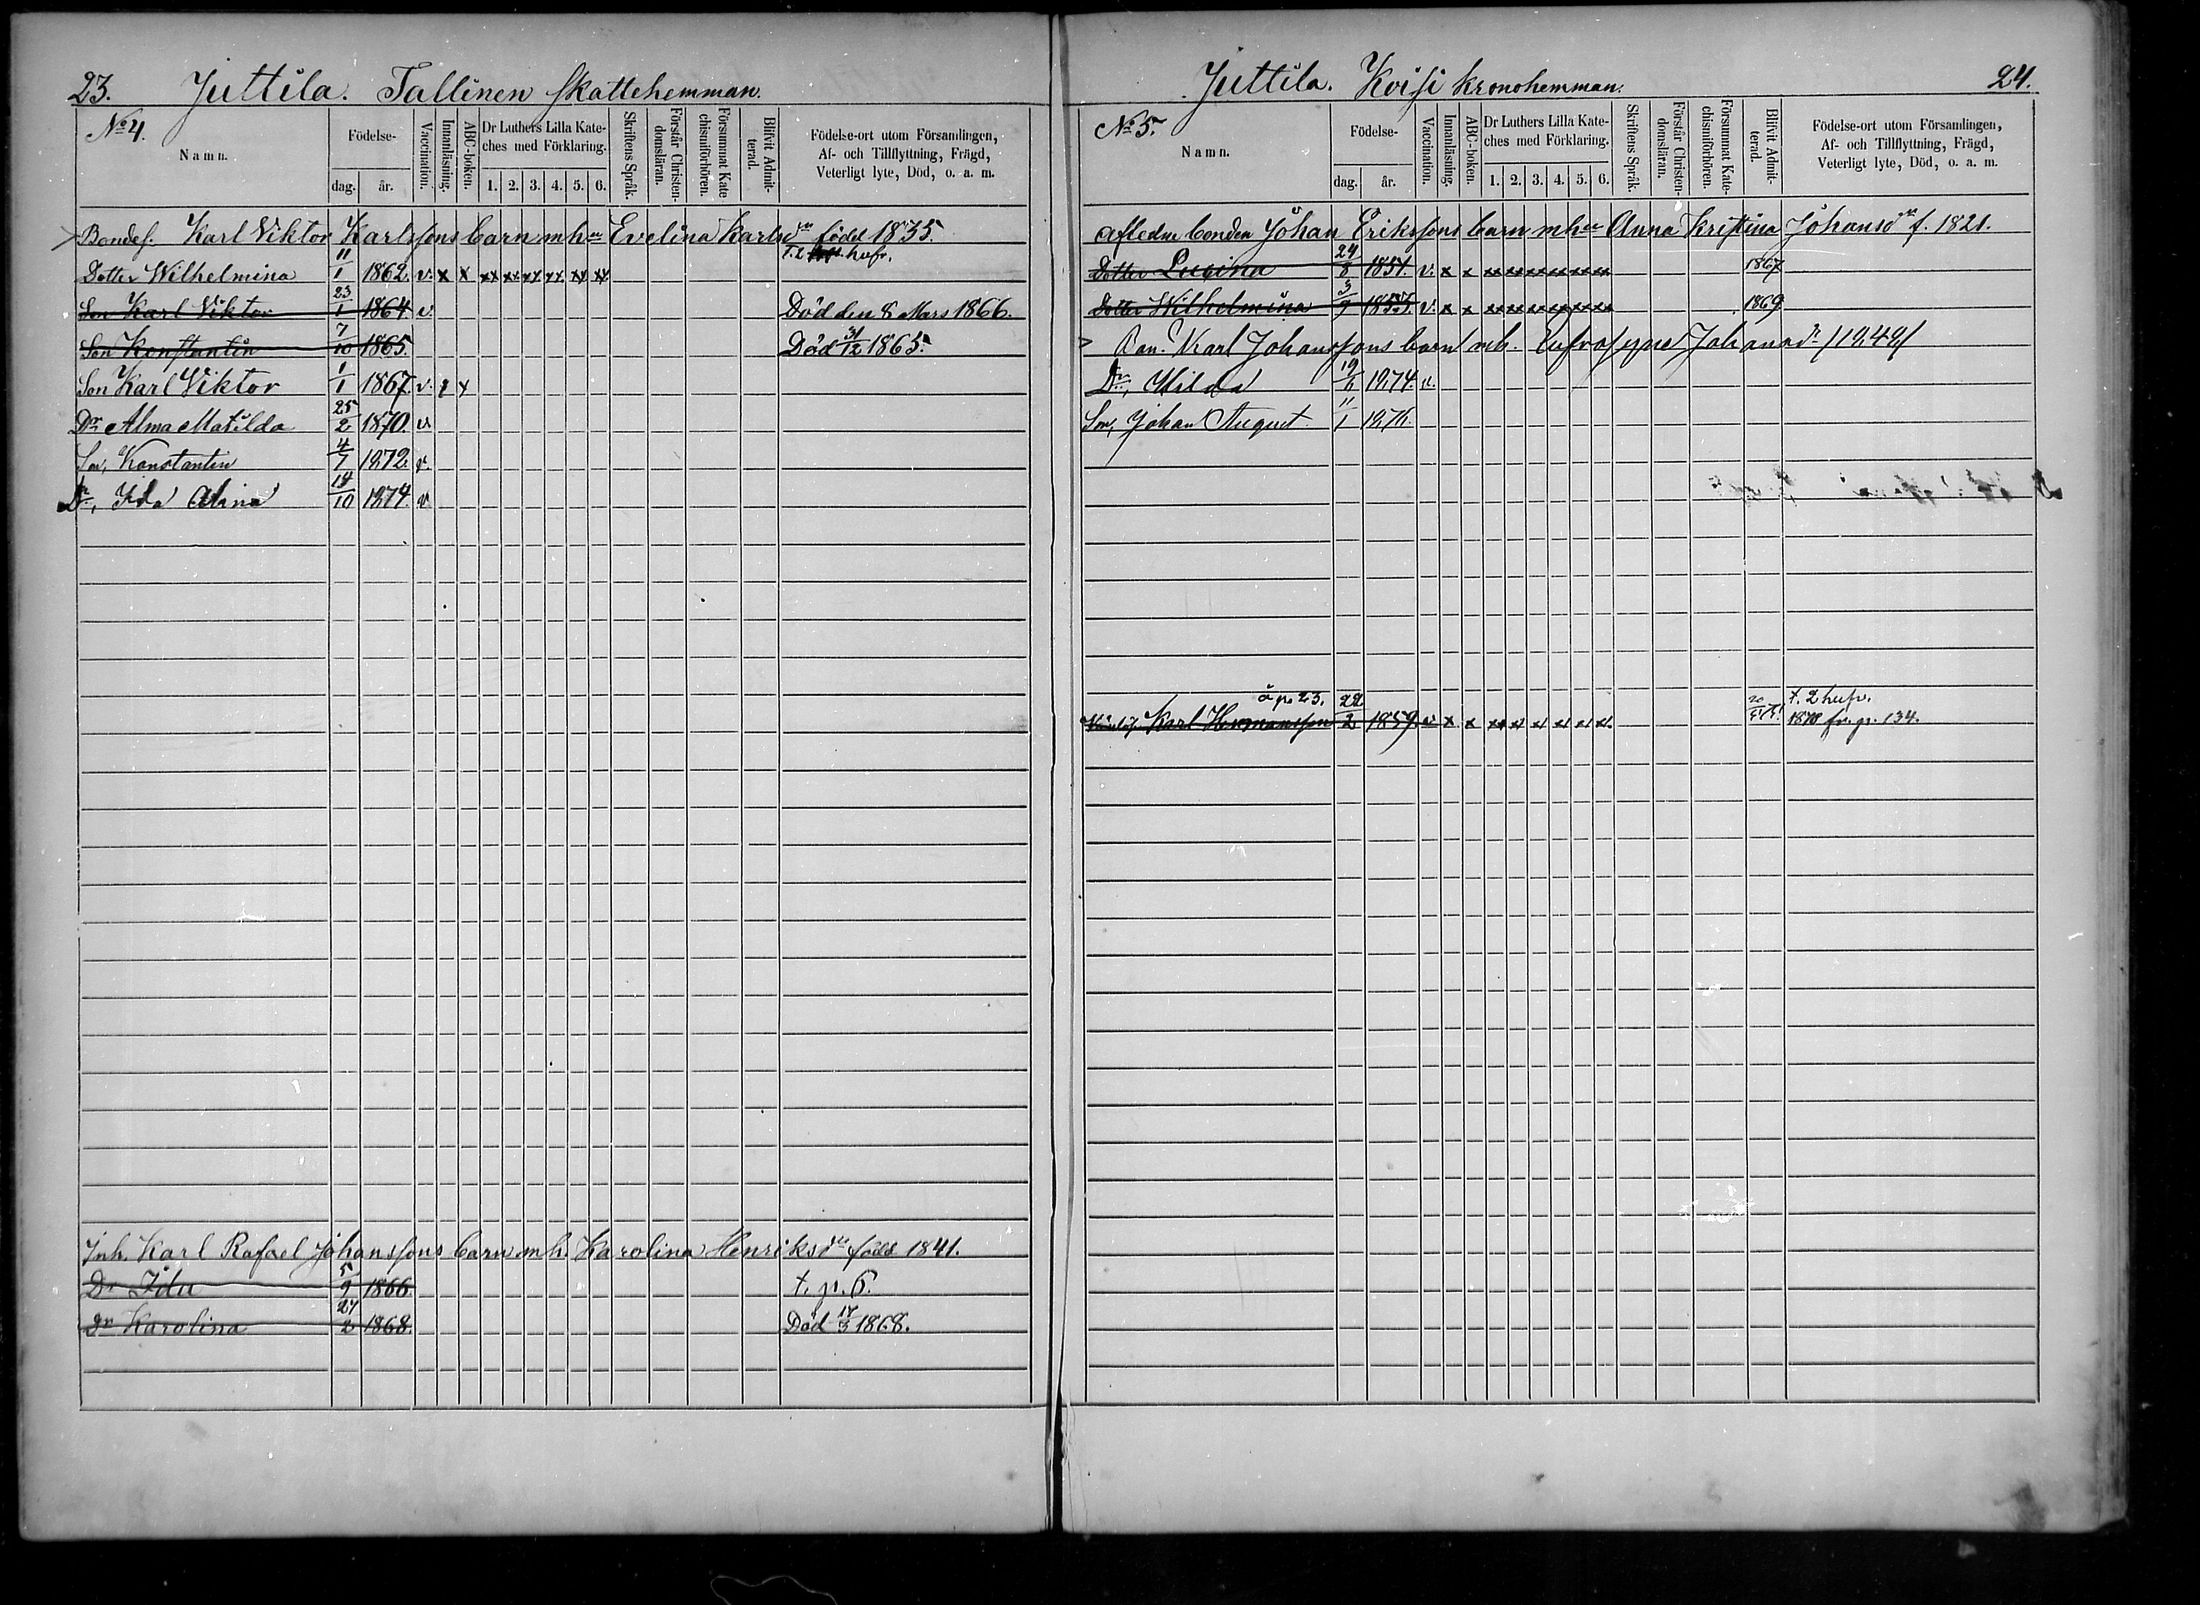 23. Juttila. Tallinen Skattehemman.
No 4.
Namn.
Födelse-
dag. år.
Vaccination.
Innanläsning.
ABC-boken.
Dr Luthers Lilla Kate-
ches med Förklaring.
1. 2. 3. 4. 5. 6.
Skriftens Språk.
Förstår Christen-
domsläran.
Försummat Kate
chismiförhören.
Blifvit Admit-
terad.
Födelse-ort utom Församlingen,
Af- och Tillflyttning, Frägd,
Veterligt lyte, Död, o. a. m.
Bondes. Karl Viktor Karlssons barn mh Evelina Karlsdr född 1835.
Dotter Wilhelmina 11/1 1862. v. x x xx xx xx xx xx xx
Son Karl Viktor 23/1 1864 v. Död den 8 Mars 1866.
Son Konstantin 7/10 1865. Död 31/12 1865.
Son Karl Viktor 1/1 1867. v.
Dr Alma Matilda 25/2 1870. v.
Son, Konstantin 4/7 1872. v.
Dr, Ida 14/10 1874. v
Inh. Karl Rafael Johanssons barn mh. Karolina Henriksdr född 1841.
Dr Ida 5/9 1866 t. p. 6.
Dr Karolina 27/2 1868. Död 17/3 1868.
Juttila. Koisi kronohemman. 24.
No 5.
Namn.
Födelse-
dag. år.
Vaccination.
Innanläsning.
ABC-boken.
Dr Luthers Lilla Kate-
ches med Förklaring.
1. 2. 3. 4. 5. 6.
Skriftens Språk.
Förstår Christen-
domsläran.
Försummat Kate-
chismiförhören.
Blifvit Admit-
terad.
Födelse-ort utom Församlingen,
Af- och Tillflyttning, Frägd,
Veterligt lyte, Död, o. a. m.
Afledne bonden Johan Erikssons barn mh Anna Kristina Johansdr f. 1821.
Dotter Lovina 24/8 1851. v. x x xx xx xx xx xx xx 1867
Dotter Wilhelmina 3/9 1855. v. x x xx xx xx xx xx xx 1869
Karl Johanssons barn mh. Eufrosyne Johansdr /1849/
Dr, Hilda 19/6 1874. v.
Son, Johan August 11/1 1876.
å p. 23.
Karl Hermansson 22/2 1859. v. x x xx xx xx xx xx xx t. 2 hufv.
1878 fr. p. 134.